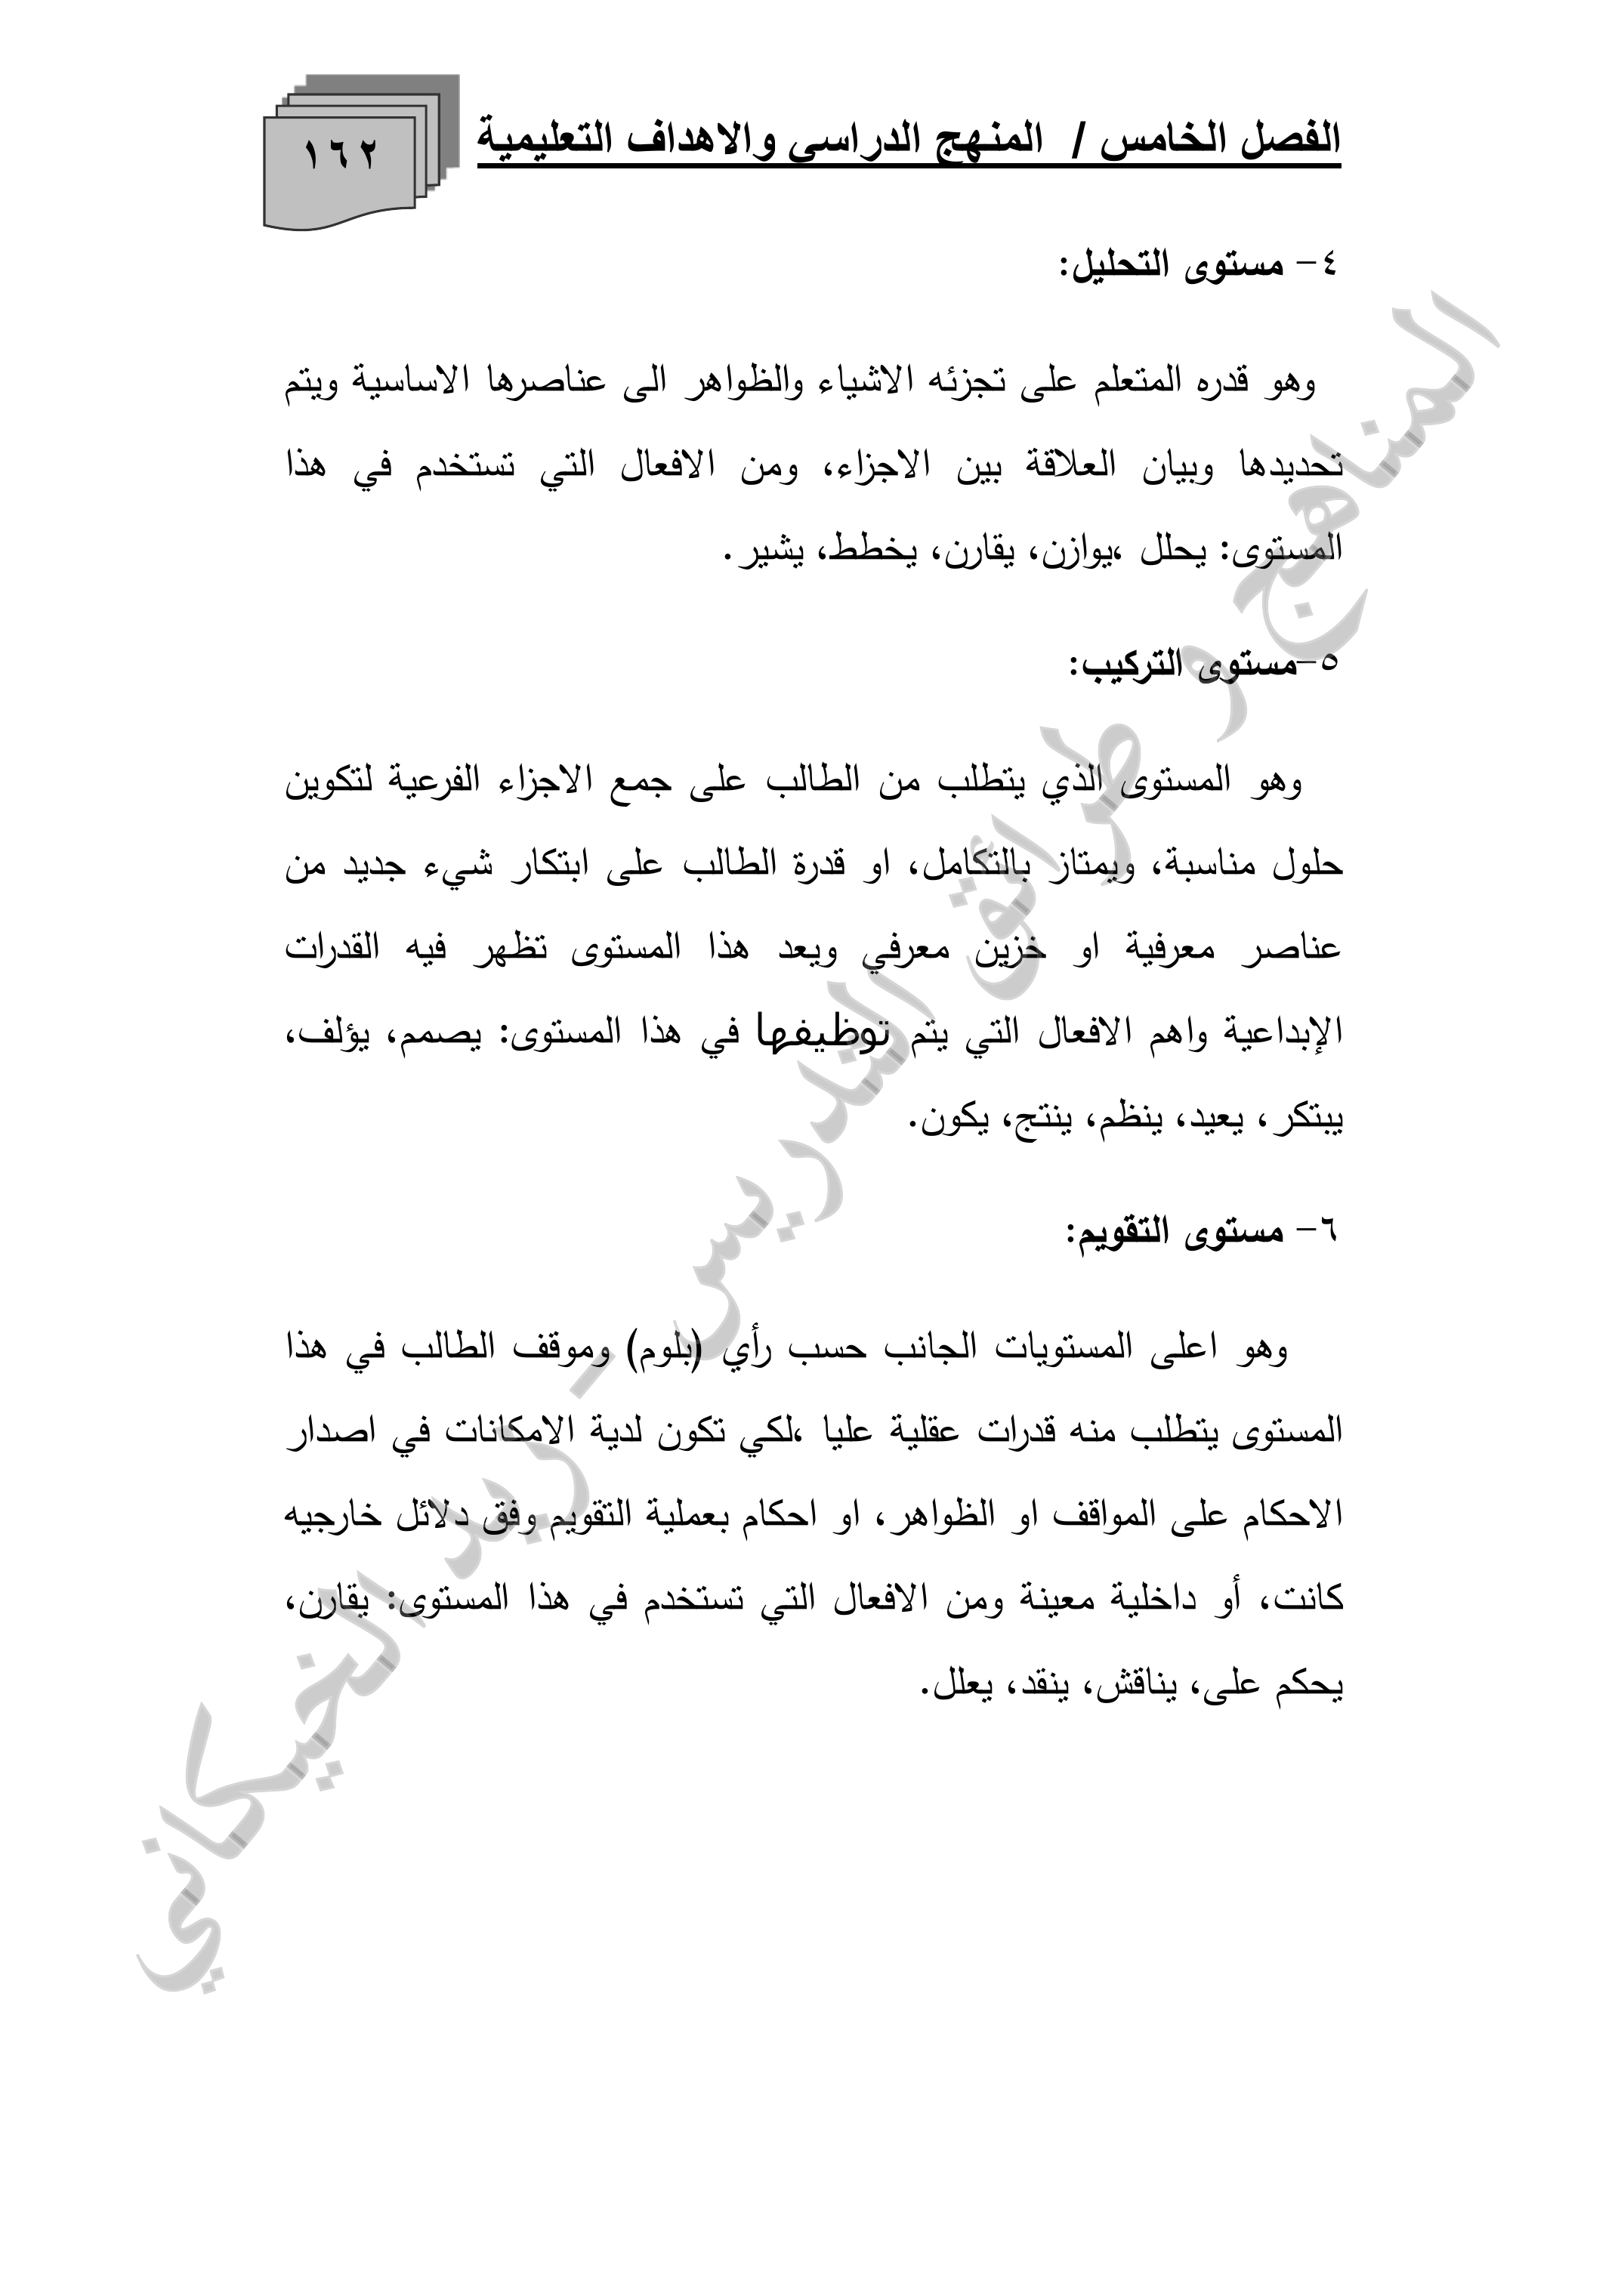 الفصل الخامس / المنهج الدراسي والاهداف التعليمية
١٦٢
٤- مستوى التحليل:
وهو قدره المتعلم على تجزئه الاشياء والظواهر الى عناصرها الاساسية ويتم
تحديدها وبيان العلاقة بين الاجزاء، ومن الافعال التي تستخدم في هذا
المستوى: يحلل ،يوازن، يقارن، يخطط، يشير.
٥-مستوى التركيب:
وهو المستوى الذي يتطلب من الطالب على جمع الاجزاء الفرعية لتكوين
حلول مناسبة، ويمتاز بالتكامل، او قدرة الطالب على ابتكار شيء جديد من
عناصر معرفية او خزين معرفي ويعد هذا المستوى تظهر فيه القدرات
الإبداعية واهم الافعال التي يتم توظيفها في هذا المستوى: يصمم، يؤلف،
يبتكر، يعيد، ينظم، ينتج، يكون.
٦- مستوى التقويم:
وهو اعلى المستويات الجانب حسب رأي (بلوم) وموقف الطالب في هذا
المستوى يتطلب منه قدرات عقلية عليا ،لكي تكون لدية الامكانات في اصدار
الاحكام على المواقف او الظواهر، او احكام بعملية التقويم وفق دلائل خارجيه
كانت، أو داخلية معينة ومن الافعال التي تستخدم في هذا المستوى: يقارن،
يحكم على، يناقش، ينقد، يعلل.
المناهج و طرائق التدريس - ريد الخيكاني